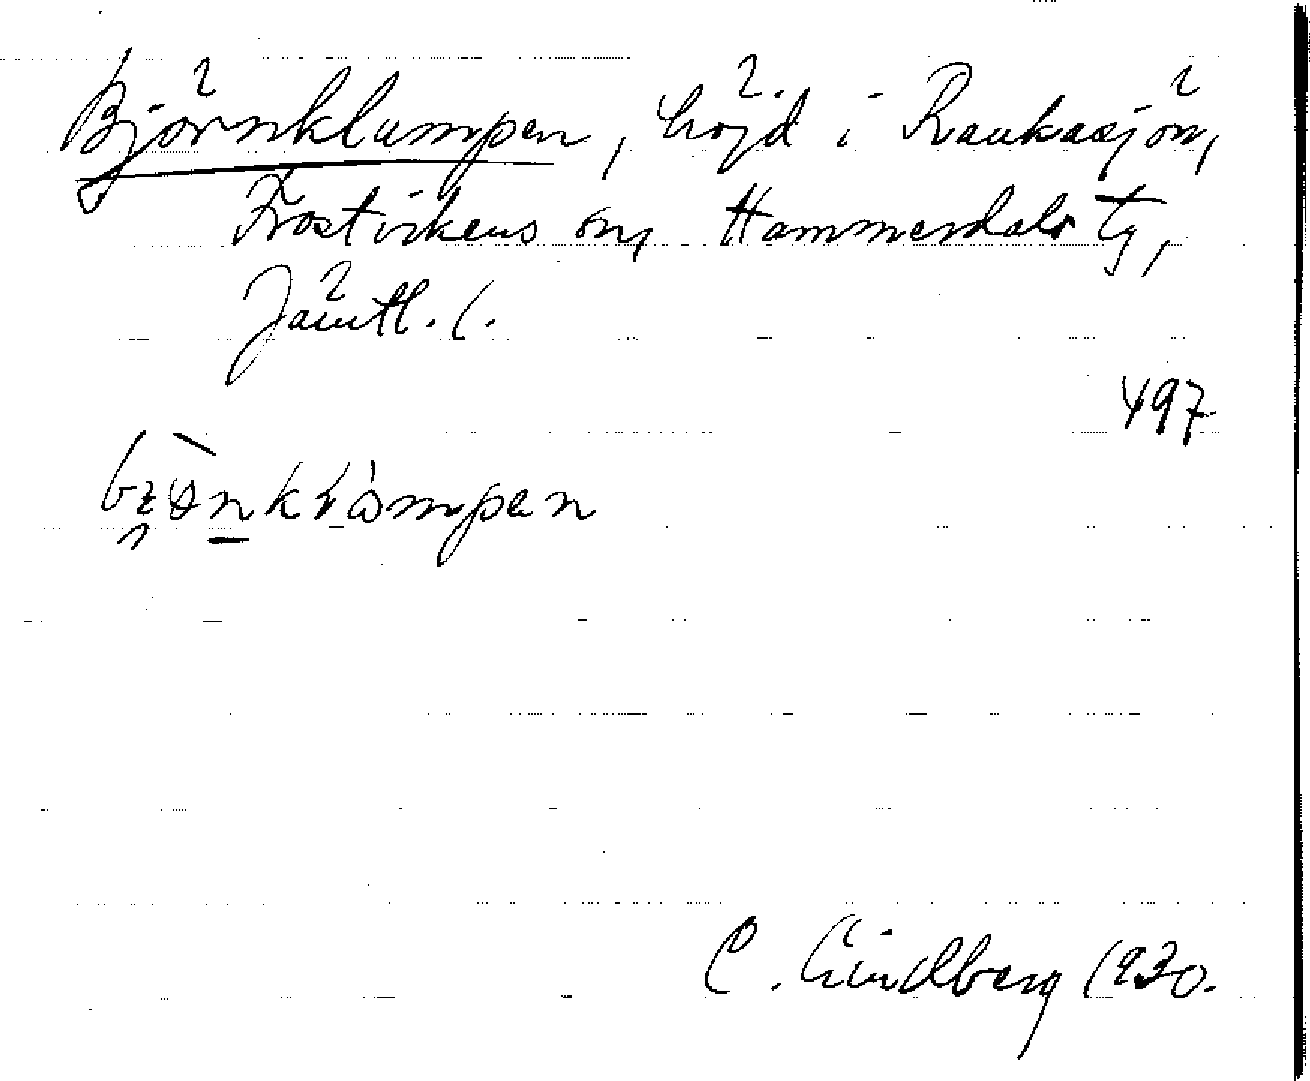 Björnklumpen, höjd i Raukasjön,
Frostvikens sn, Hammerdals tg,
Jämtl. l.
497
C. Lindberg 1930.